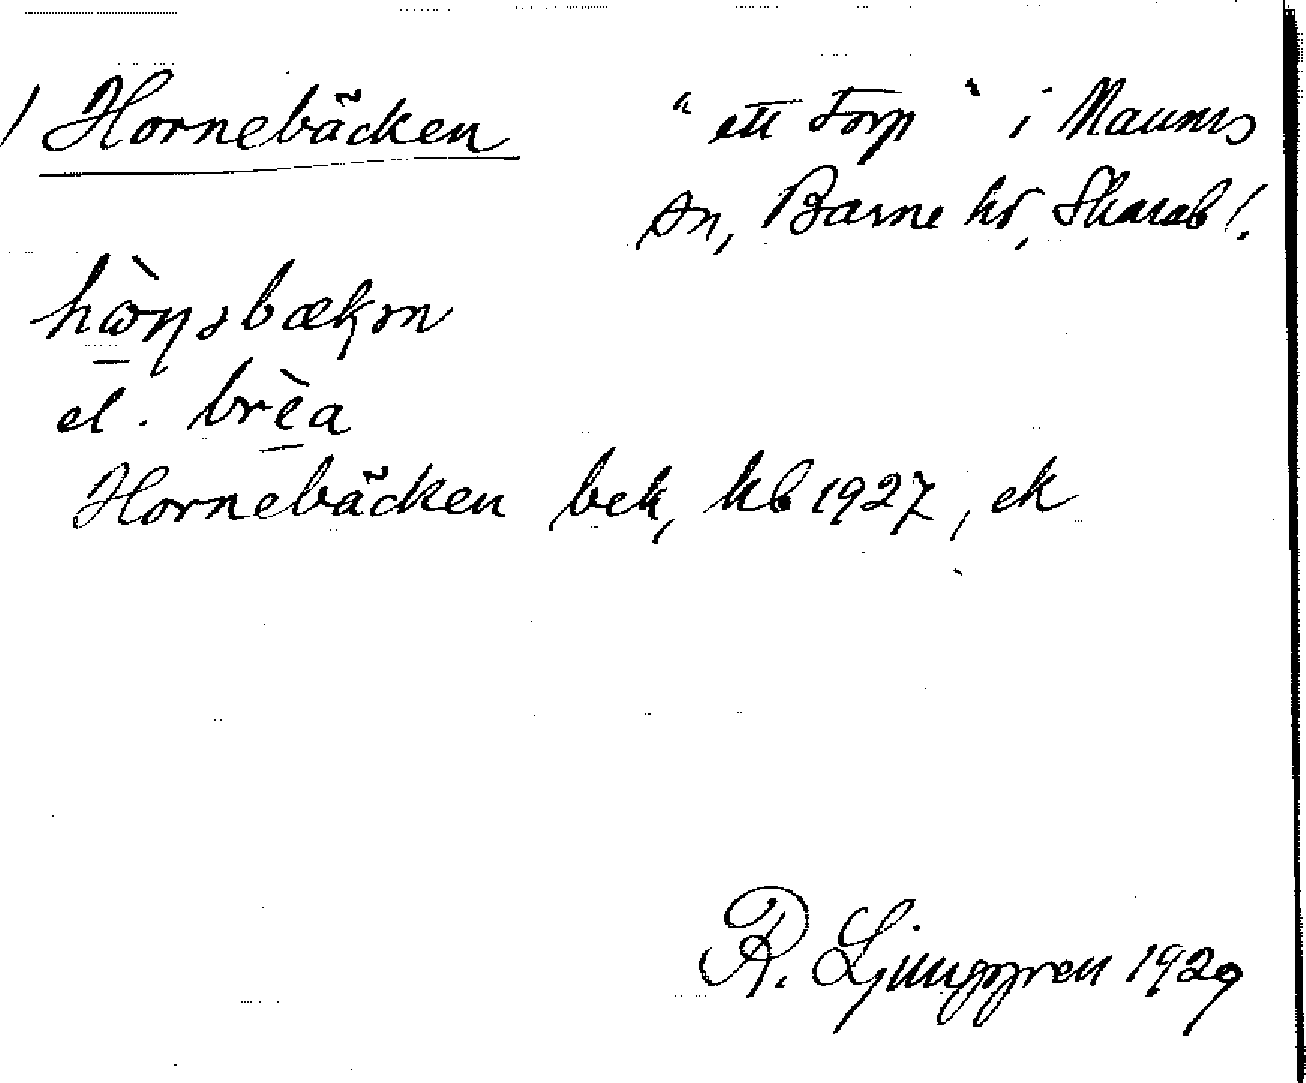 / Hornebäcken "ett torp" i Naums
sn, Barne hd, Skarab l.
hɷ̀ṇəbækən
el. brèa
Hornebäcken bek, kb 1927, ek
R. Ljunggren 1929